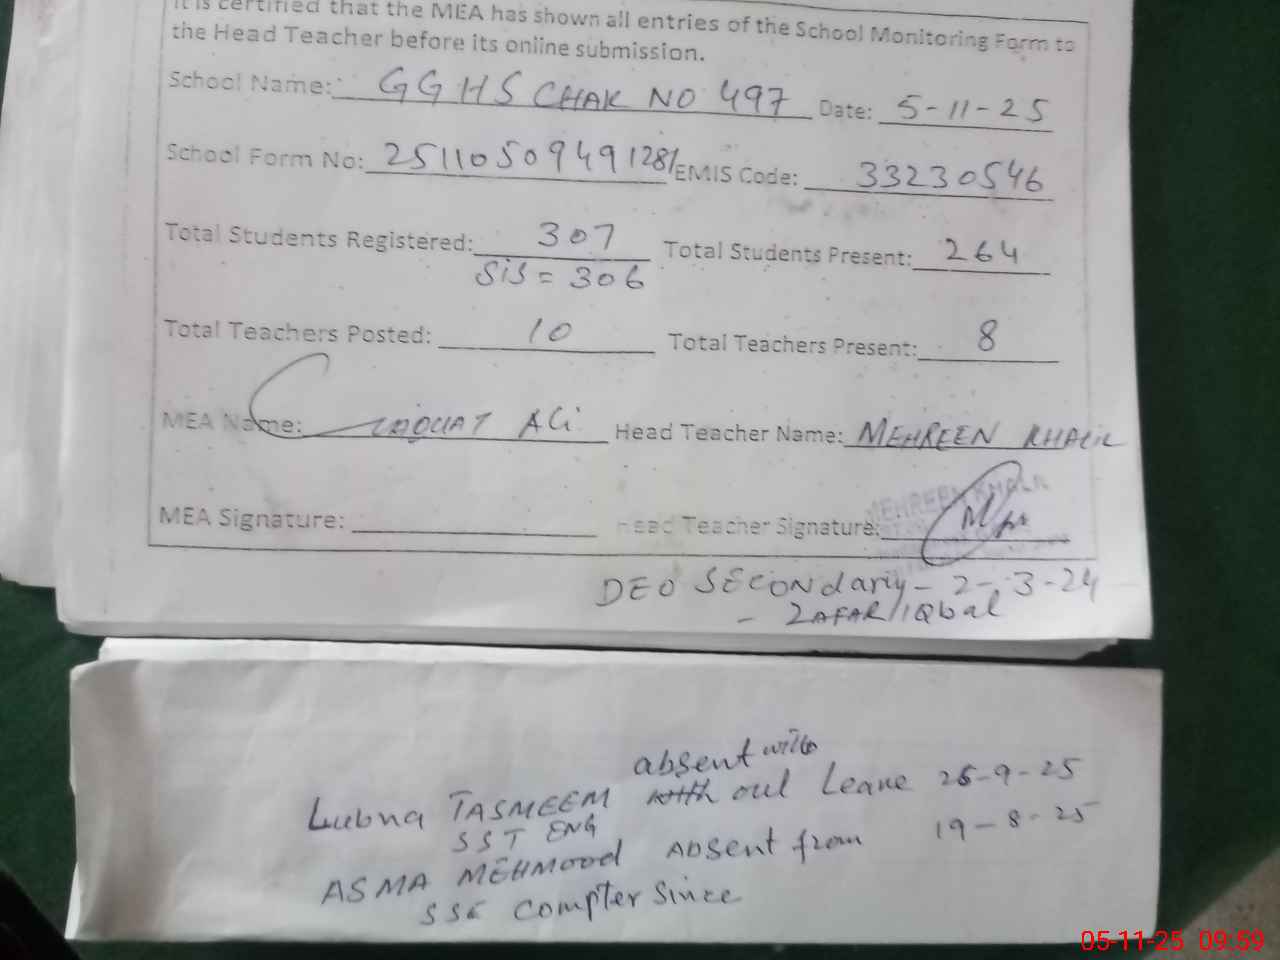 It is certified that the MEA has shown all entries of the School Monitoring Form to
the Head Teacher before its online submission.
School Name: GGHS CHAK NO 497 Date: 5-11-25
School Form No: 25110509491281 EMIS Code: 33230546
Total Students Registered: 307 Total Students Present: 264
SiS = 306
Total Teachers Posted: 10 Total Teachers Present: 8
MEA Name: LIAQUAT ALi Head Teacher Name: MEHREEN KHALiL
MEA Signature: Head Teacher Signature:
MEHREEN KHALIL
DEO SECONdariy - 2-3-24
- ZAFAR IQbal
absent with
Lubna TASMEEM out Leave 26-9-25
SST ENG
ASMA MEHMOOd ABSent from 19-8-25
SSE Compter Since
05-11-25 09:59